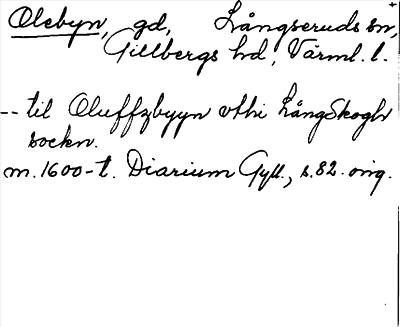 Olebyn, gd, Långseruds sn,
Gillbergs hd, Värml. l.
-- til Oluffzbyyn vthi Långskogh
sockn.
m. 1600-t. Diarium Gyll., s. 82 orig.